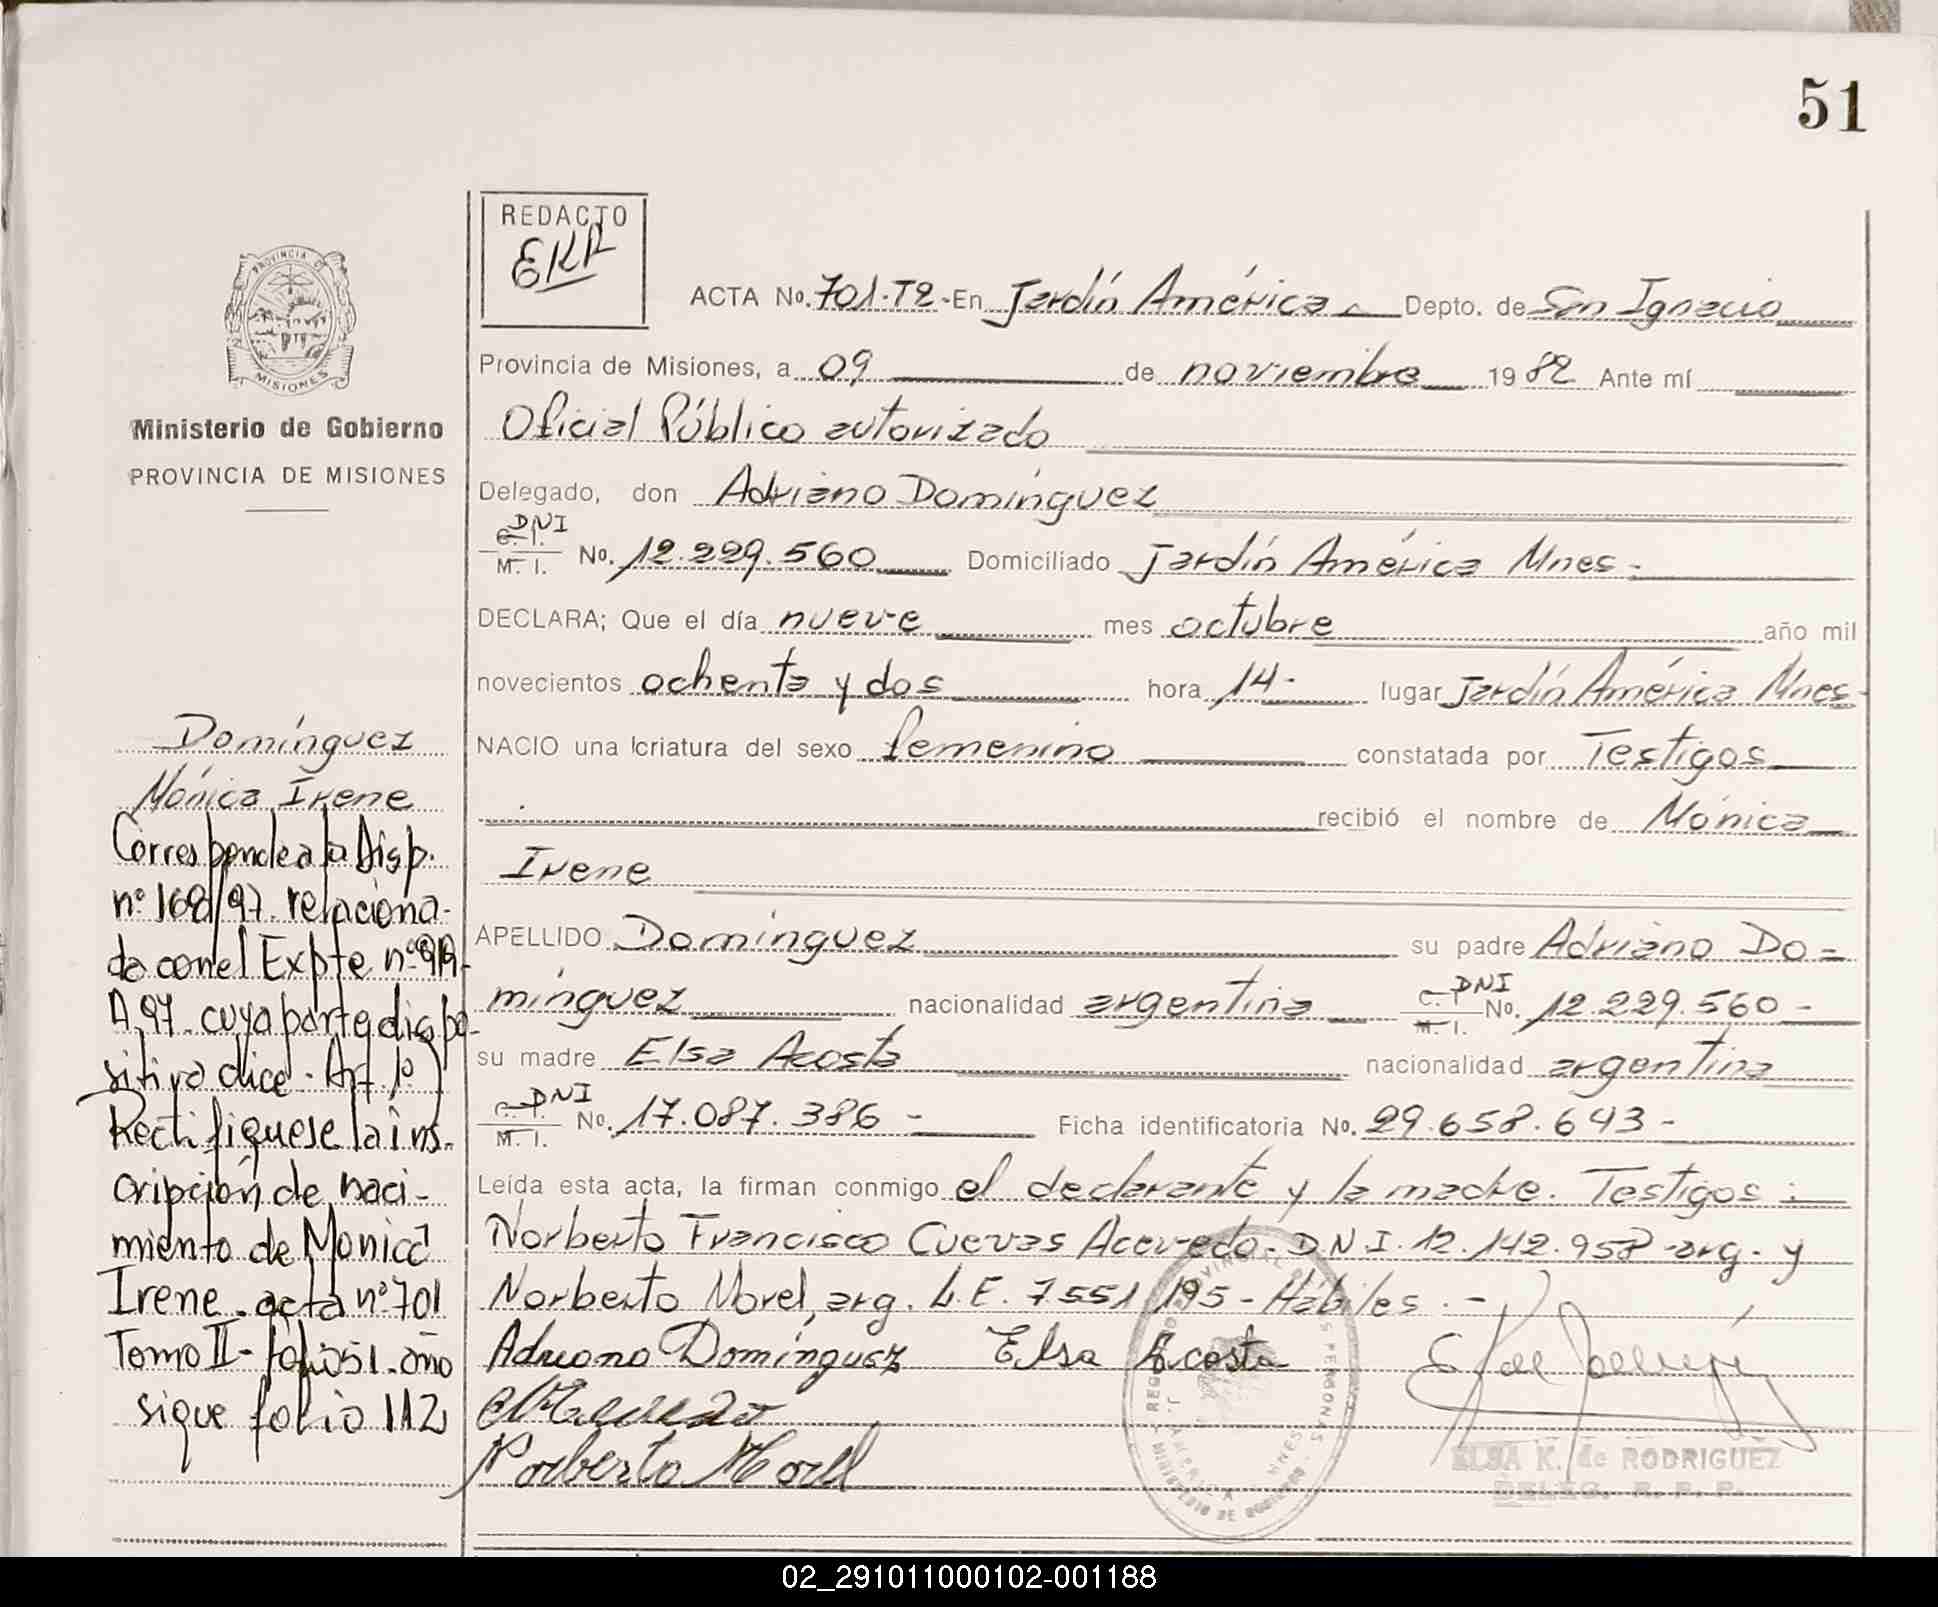 51
REDACTO
EKR
PROVINCIA DE
MISIONES
Ministerio de Gobierno
PROVINCIA DE MISIONES
ACTA No. 701-T2-En Jardín América Depto. de San Ignacio
Provincia de Misiones, a 09 de noviembre 1982 Ante mí
Oficial Público autorizado
Delegado, don Adriano Domínguez
DNI
C. I.
M. I. No. 12.229.560 Domiciliado Jardín América Mnes.
DECLARA; Que el día nueve mes octubre año mil
novecientos ochenta y dos hora 14- lugar Jardín América Mnes-
NACIO una criatura del sexo femenino constatada por Testigos
recibió el nombre de Mónica
Irene
APELLIDO Domínguez su padre Adriano Do=
mínguez nacionalidad argentina C. I. DNI
M. I. No. 12.229.560-
su madre Elsa Acosta nacionalidad argentina
C. I. DNI
M. I. No. 17.087.386- Ficha identificatoria No. 29.658.643-
Leída esta acta, la firman conmigo el declarante y la madre. Testigos:
Norberto Francisco Cuevas Acevedo- DNI. 12.142.958-arg. y
Norberto Morel, arg. L.E. 7551195- Hábiles.-
Adriano Domínguez Elsa Acosta
Norberto Morel
ELSA K. de RODRIGUEZ
DELEG. R. P. P.
Domínguez
Mónica Irene
Corresponde a la Disp.
nº 168/97. relaciona-
da con el Expte nº
A 97. cuya parte dispo-
sitiva dice. Art 1º)
Rectifíquese la ins-
cripción de naci-
miento de Monica
Irene. acta nº 701
Tomo II- folio 51. año
sigue folio 112
02_291011000102-001188